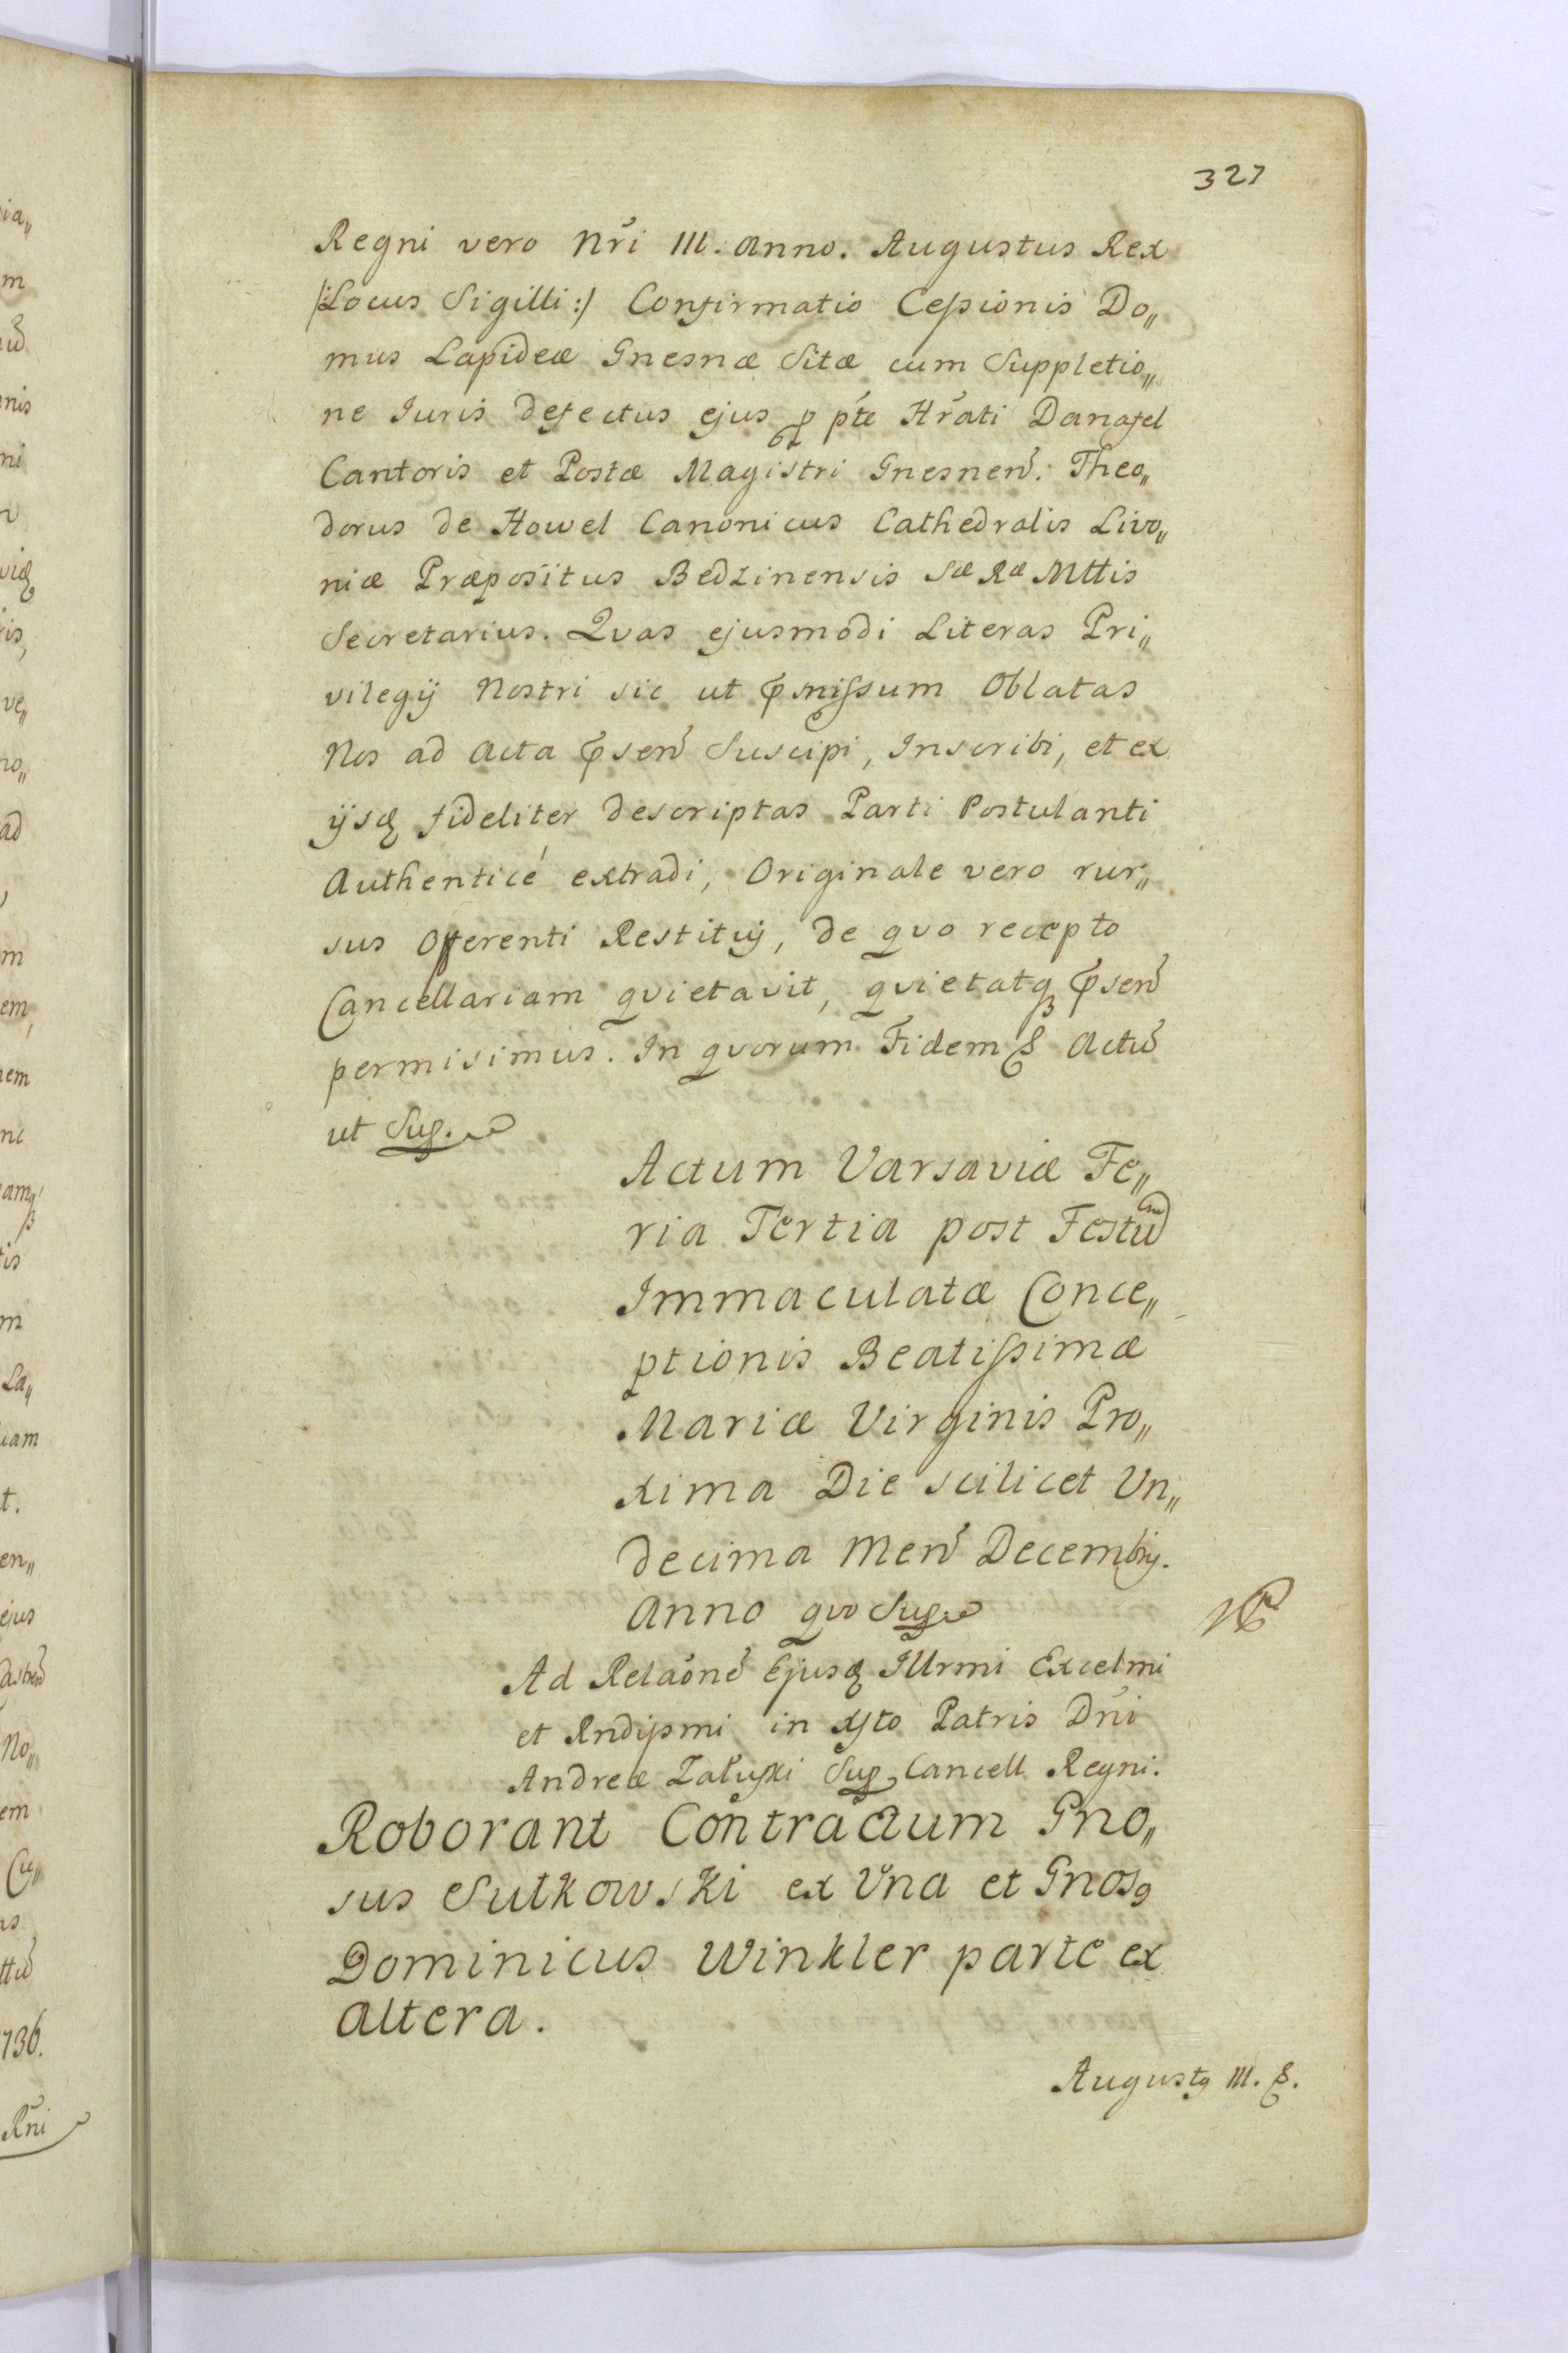 327
Regni vero Nri III. Anno. Augustus Rex
/:Locus Sigilli:/ Confirmatio Cessionis Do„
mus Lapideæ Gnesnæ Sitæ cum Suppletio„
ne Iuris defectus ejus p pte Hrati Danafel
Cantoris et Postæ Magistri Gnesnen. Theo„
dorus de Howel Canonicus Cathedralis Livo„
niæ Præpositus Bedzinensis Sæ Ræ Mttis
Secretarius. Qvas ejusmodi Literas Pri„
vilegij Nostri sic ut pmissum Oblatas
Nos ad Acta psen Suscipi, Inscribi, et ex
ijsq fideliter descriptas Parti Postulanti
Authenticé extradi, Originale vero rur„
sus Offerenti Restituj, de qvo recepto
Cancellariam qvietavit, qvietatq psen
permisimus. In qvorum Fidem & Actu
ut Sup.
Actum Varsaviæ Fe„
ria Tertia post Festu
Immaculatæ Conce„
ptionis Beatissimæ
Mariæ Virginis Pro„
xima Die scilicet Un„
decima Men Decembrij.
Anno qvo Sup
Ad Relaone Ejusq Illrmi Excelmi
et Rndissmi in Xsto Patris Dni
Andreæ Załuski Sup Cancell Regni.
Roborant Contractum Gno„
sus Sutkowski ex Una et Gnosg
Dominicus Winkler parte ex
altera.
Augustg III. &.